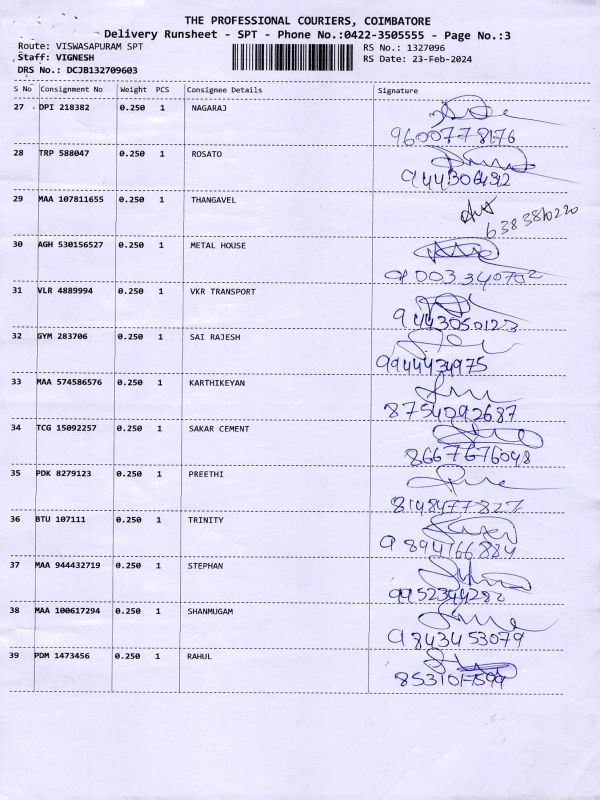 THE PROFESSIONAL COURIERS, COIMBATORE
Delivery Runsheet - SPT - Phone No.:0422-3505555 - Page No.:3
Route: VISWASAPURAM SPT RS No.: 1327096
Staff: VIGNESH RS Date: 23-Feb-2024
DRS No.: DCJB132709603
S No Consignment No Weight PCS Consignee Details Signature
27 DPI 218382 0.250 1 NAGARAJ
9600778176
28 TRP 588047 0.250 1 ROSATO
29 MAA 107811655 0.250 1 THANGAVEL
30 AGH 530156527 0.250 1 METAL HOUSE
31 VLR 4889994 0.250 1 VKR TRANSPORT
9443050123
32 GYM 283706 0.250 1 SAI RAJESH
9944434975
33 MAA 574586576 0.250 1 KARTHIKEYAN
8754092687
34 TCG 15092257 0.250 1 SAKAR CEMENT
8667676048
35 PDK 8279123 0.250 1 PREETHI
8148477827
36 BTU 107111 0.250 1 TRINITY
9894766884
37 MAA 944432719 0.250 1 STEPHAN
9952344282
38 MAA 100617294 0.250 1 SHANMUGAM
9843453079
39 PDM 1473456 0.250 1 RAHUL
8531017599